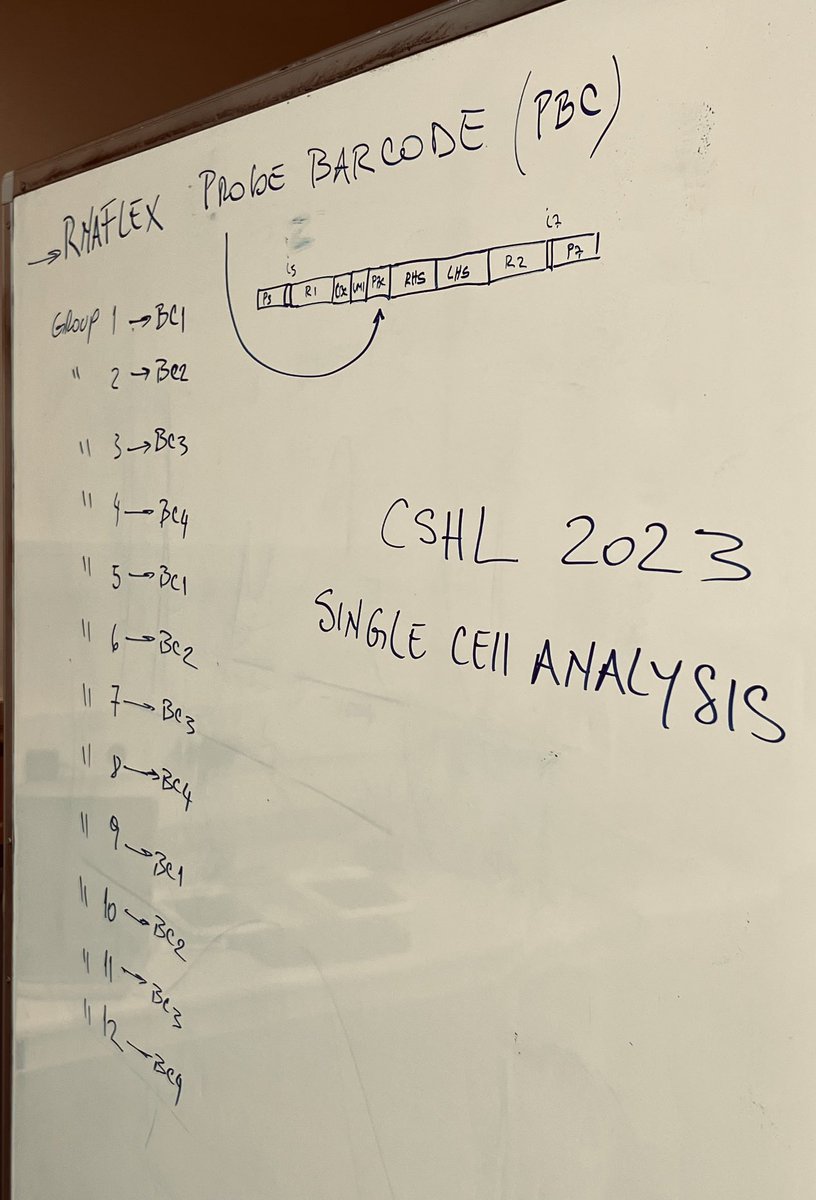 → RNAFLEX PROBE BARCODE (PBC)
i5 i7
P5 R1 UMI PBC RHS LHS R2 P7
GROUP 1 → BC1
" 2 → BC2
" 3 → BC3
" 4 → BC4
" 5 → BC1
" 6 → BC2
" 7 → BC3
" 8 → BC4
" 9 → BC1
" 10 → BC2
" 11 → BC3
" 12 → BC4
CSHL 2023
SINGLE CEll ANALYSIS